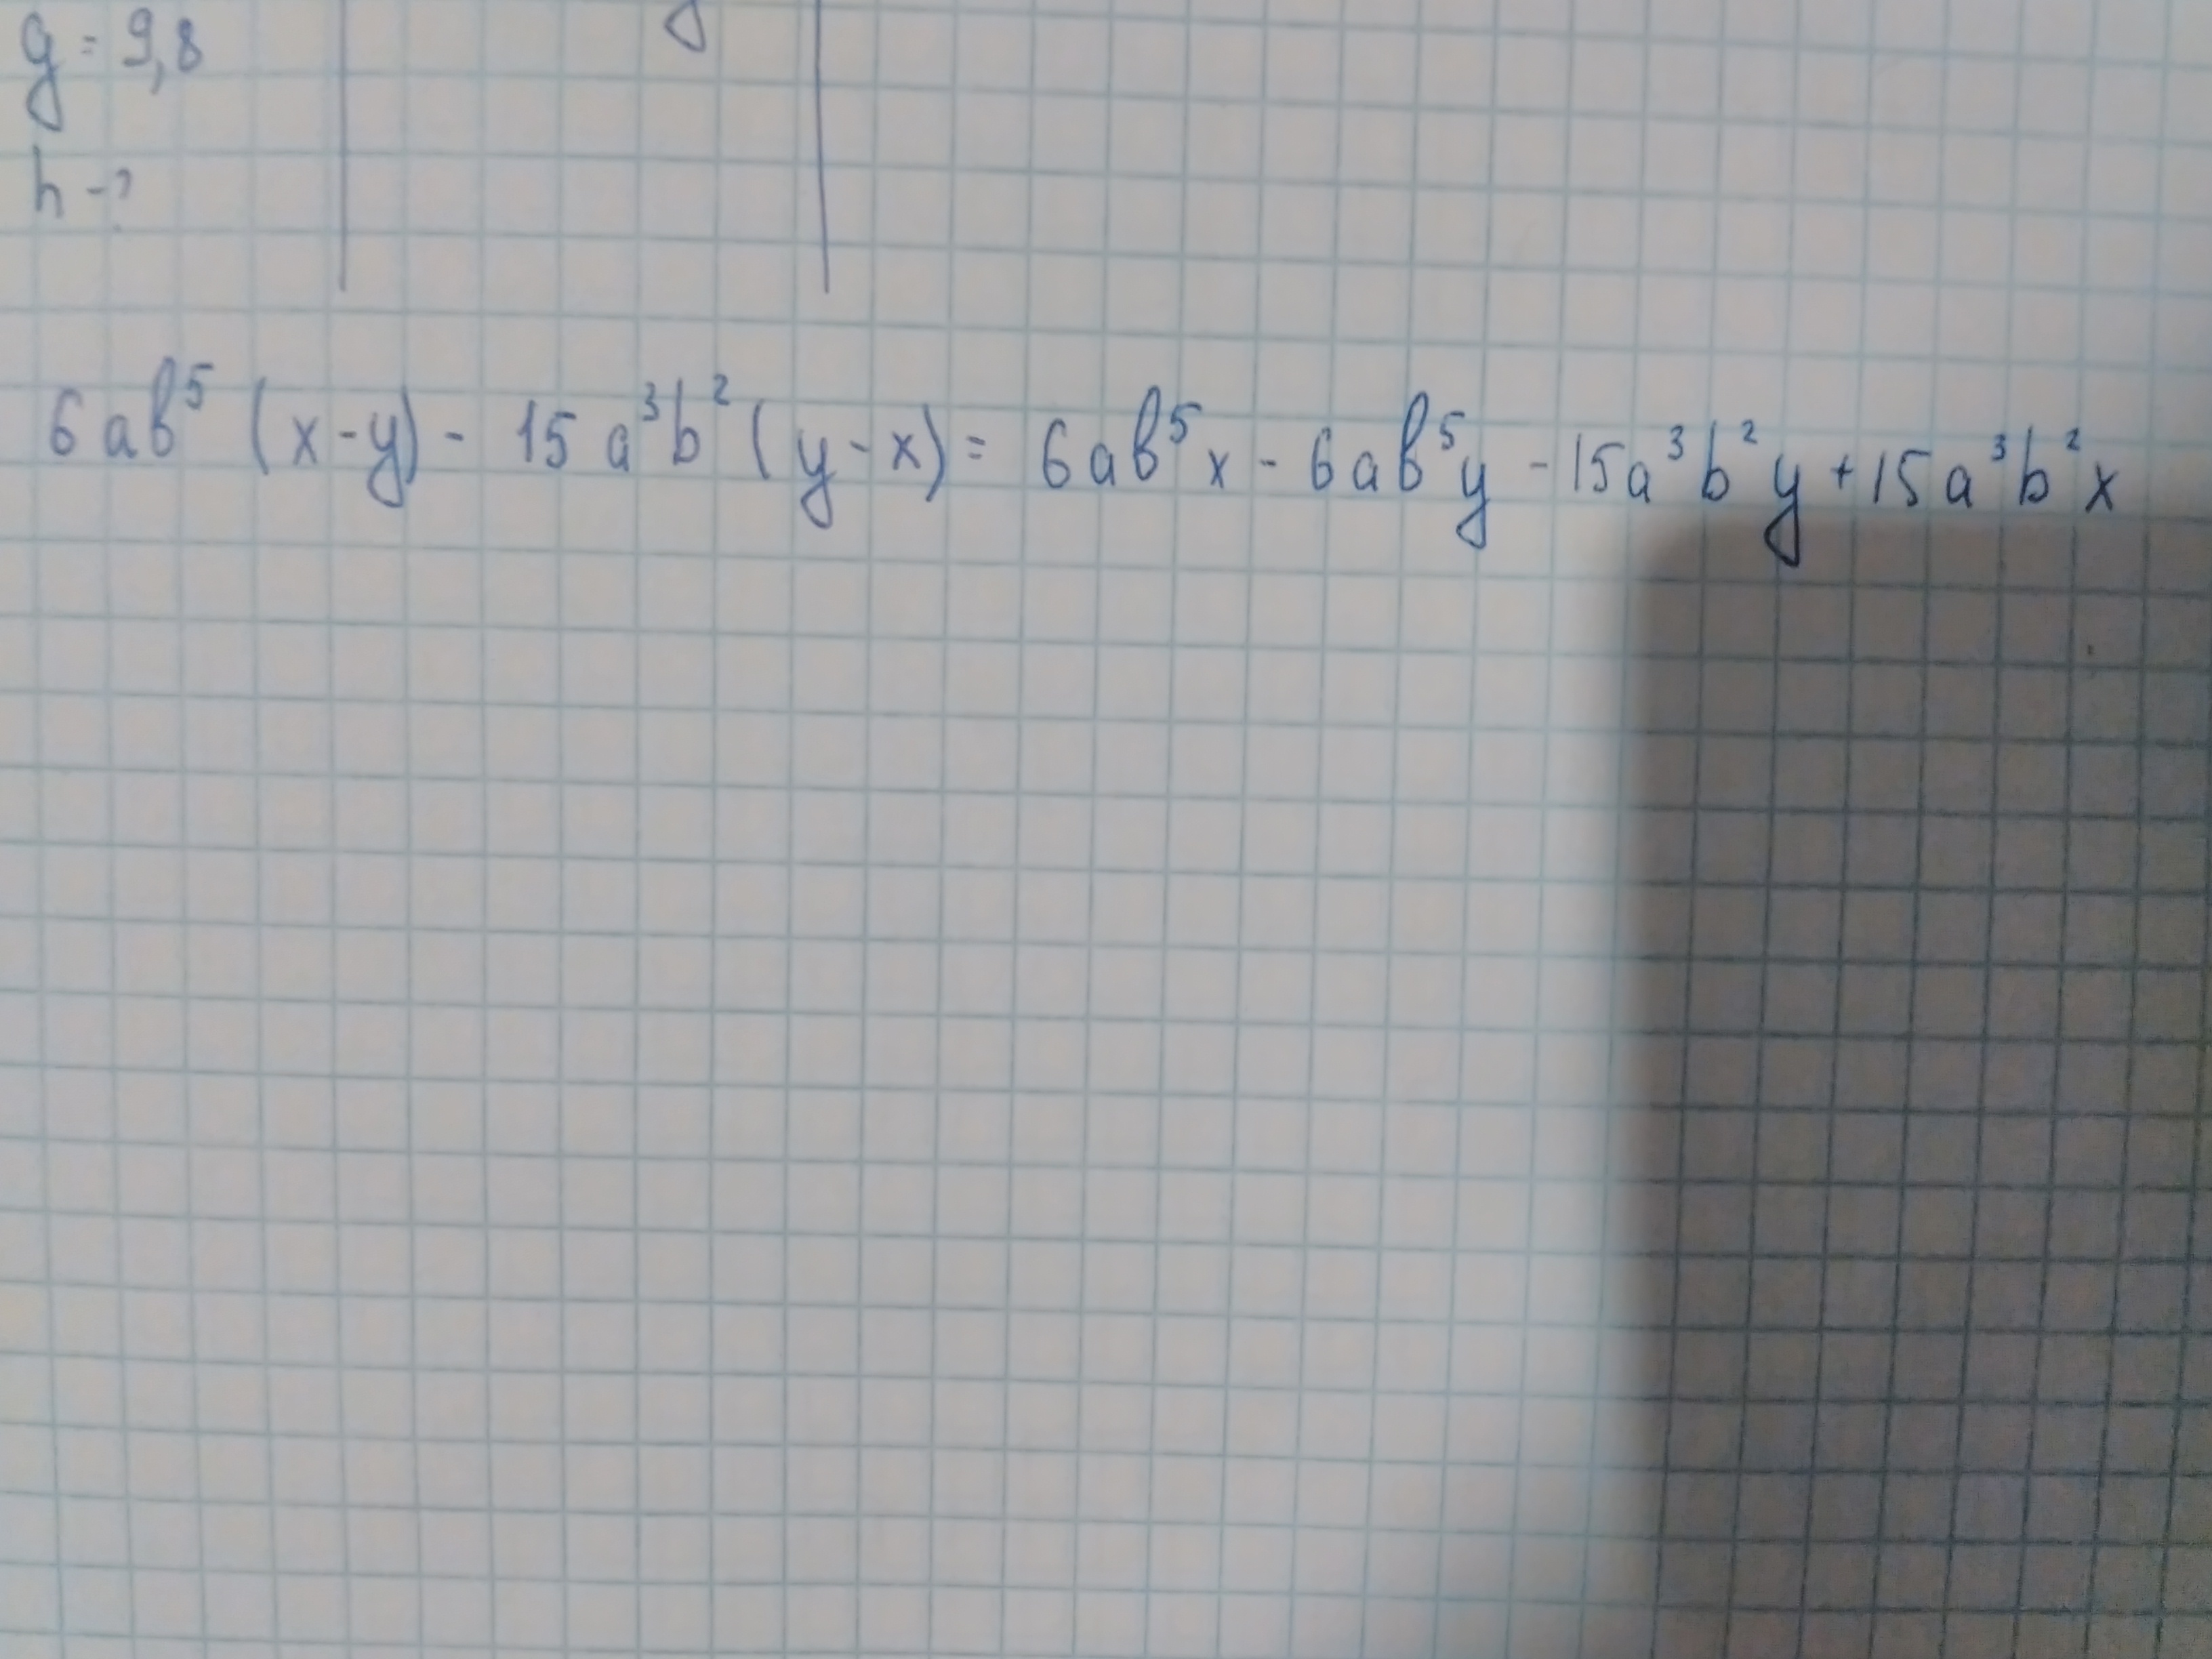 g = 9,8
h - ?
6ab⁵ (x-y) - 15 a³b² (y-x) = 6ab⁵x - 6ab⁵y - 15a³b²y + 15a³b²x